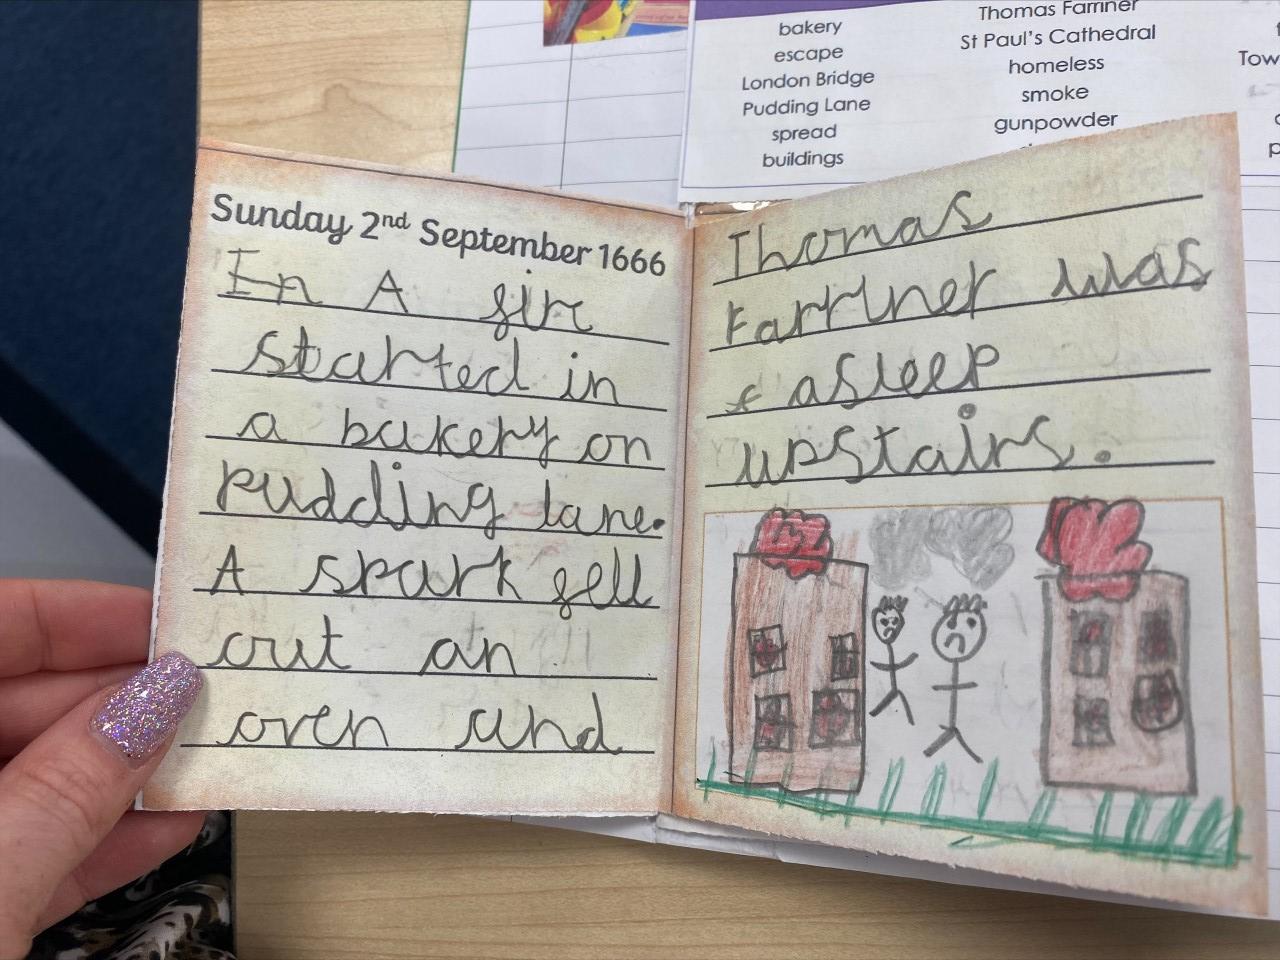 bakery
escape
London Bridge
Pudding Lane
spread
buildings
Thomas Farriner
St Paul's Cathedral
homeless
smoke
gunpowder
Sunday 2nd September 1666
In A fire
started in
a bakery on
pudding lane.
A spark fell
out an
oven and
Thomas
Farriner was
asleep
upstairs.